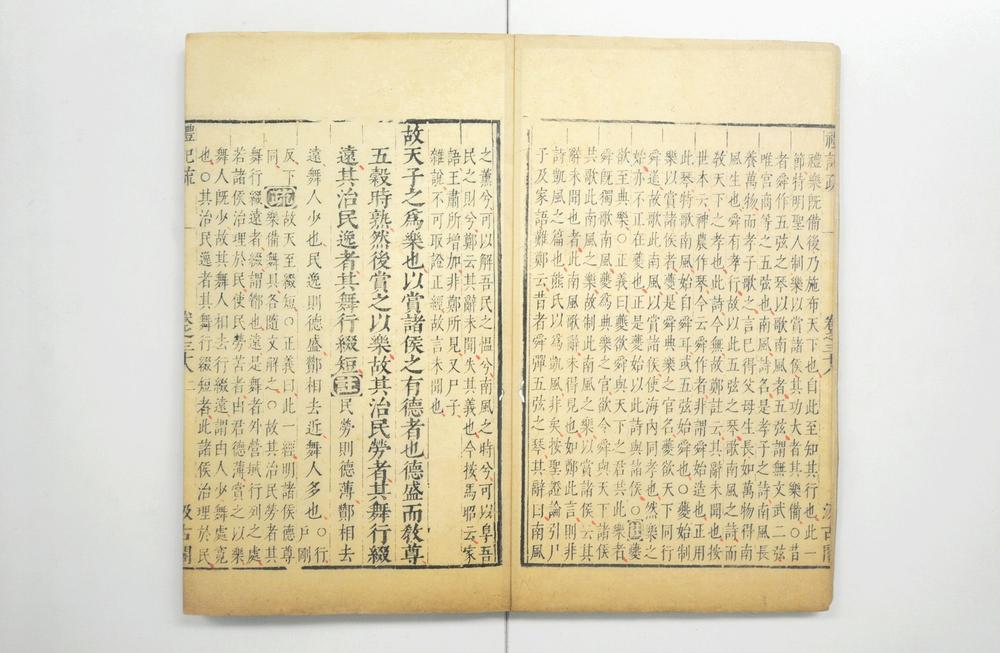 禮記疏 卷之三十八 汲古閣
禮樂既備後乃施布天下也自此至知其行也此一
節特明聖人制樂以賞諸侯其功大者其樂備○昔
者舜作五弦之琴以歌南風者五弦謂無文武二弦
唯宮商等之五弦也南風詩名是孝子之詩南風長
養萬物而孝子歌之言已得父母生長如萬物得南
風生也舜有孝行故以此五弦之琴歌南風之詩而
敎天下之孝也此詩今無故鄭註云其辭未聞也按
世本云神農作琴今云舜作者非謂舜始造也正用
此琴特歌南風始自舜耳或五弦始舜也○夔始制
樂以賞諸侯者夔是舜典樂之官名夔欲天下同行
舜道故歌此南風以賞諸侯使海內同孝也然樂之
始亦不正在夔也正是夔始以此詩與諸侯○註夔
欲至典樂○正義曰夔欲舜與天下之君共此樂者
舜旣獨歌南風夔爲典樂之官欲令舜與天下諸侯
共歌此南風之樂故制此南風之樂以賞諸侯云其
辭未聞也者此南風歌辭未得見也如鄭此言則非
詩之篇也熊氏以爲凱風非矣按聖證論引尸
子及家語難鄭云昔者舜彈五弦之琴其辭曰南風
之薰兮可以解吾民之慍兮南風之時兮可以阜吾
民之財兮鄭云其辭未聞失其義也今按馬昭云家
語王肅所增加非鄭所見又尸子
雜說不可取證正經故言未聞也
故天子之爲樂也以賞諸侯之有德者也德盛而敎尊
五穀時熟然後賞之以樂故其治民勞者其舞行綴
遠其治民逸者其舞行綴短註民勞則德薄酇相去
遠舞人少也民逸則德盛酇相去近舞人多也○行戶剛
反下同疏故天至綴短○正義曰此一經明諸侯德尊
樂備舞具各隨文解之○故其治民勞者其
舞行綴遠者綴謂酇也遠是舞者外營域行列之處
若諸侯治理於民使民勞苦者由君德薄賞之以樂
舞人旣少故其舞人相去行綴遠謂由人少舞處寬
也○其治民逸者其舞行綴短者此諸侯治理於民
禮記疏 卷之三十八 二 汲古閣